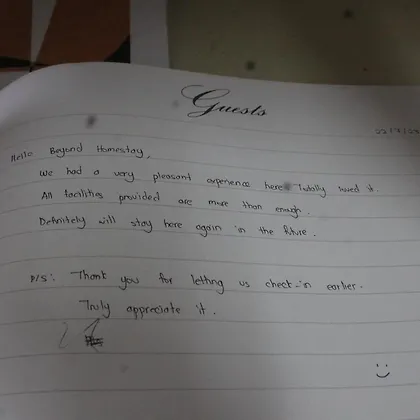 Guests
Hello Beyond Homestay,
We had a very pleasant experience here Totally loved it.
All facilities provided are more than enough.
Definitely will stay here again in the future.
P/S: Thank you for letting us check-in earlier.
Truly appreciate it.